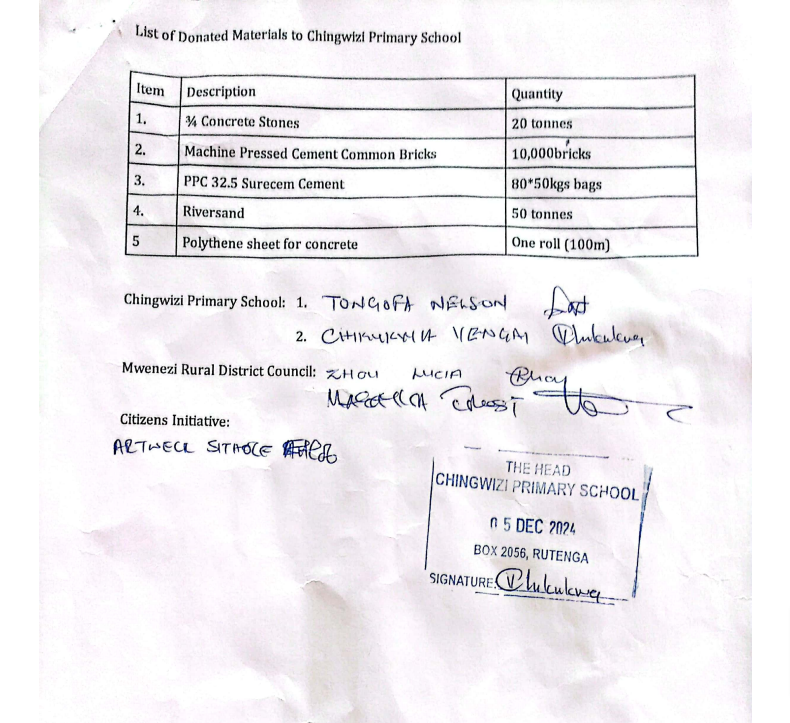 List of Donated Materials to Chingwizi Primary School
Item Description Quantity
1. ¾ Concrete Stones 20 tonnes
2. Machine Pressed Cement Common Bricks 10,000bricks
3. PPC 32.5 Surecem Cement 80*50kgs bags
4. Riversand 50 tonnes
5 Polythene sheet for concrete One roll (100m)
Chingwizi Primary School: 1. TONGOFA NELSON
2. CHIKUKWA VENGAI Chukukwa
Mwenezi Rural District Council: ZHOU LUCIA
Citizens Initiative:
ARTWELL SITHOLE
THE HEAD
CHINGWIZI PRIMARY SCHOOL
05 DEC 2024
BOX 2056, RUTENGA
SIGNATURE: